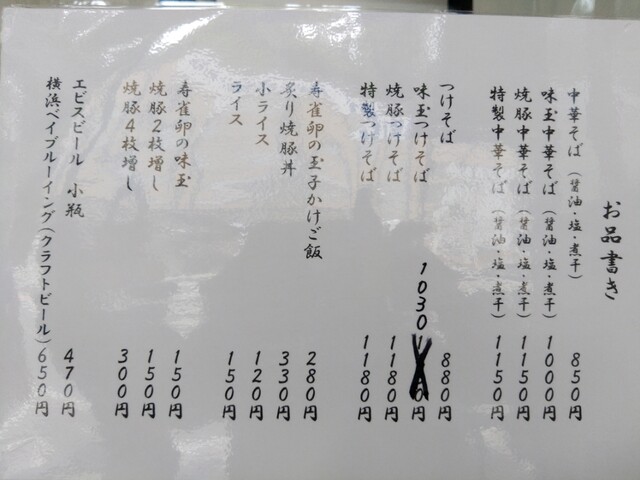 お品書き
中華そば(醤油・塩・煮干) 850円
味玉中華そば(醤油・塩・煮干) 1000円
焼豚中華そば(醤油・塩・煮干) 1150円
特製中華そば(醤油・塩・煮干) 1150円
つけそば 880円
味玉つけそば 1030円
焼豚つけそば 1180円
特製つけそば 1180円
寿雀卵の玉子かけご飯 280円
炙り焼豚丼 330円
小ライス 120円
ライス 150円
寿雀卵の味玉 150円
焼豚2枚増し 150円
焼豚4枚増し 300円
エビスビール 小瓶 470円
横浜ベイブルーイング(クラフトビール) 650円